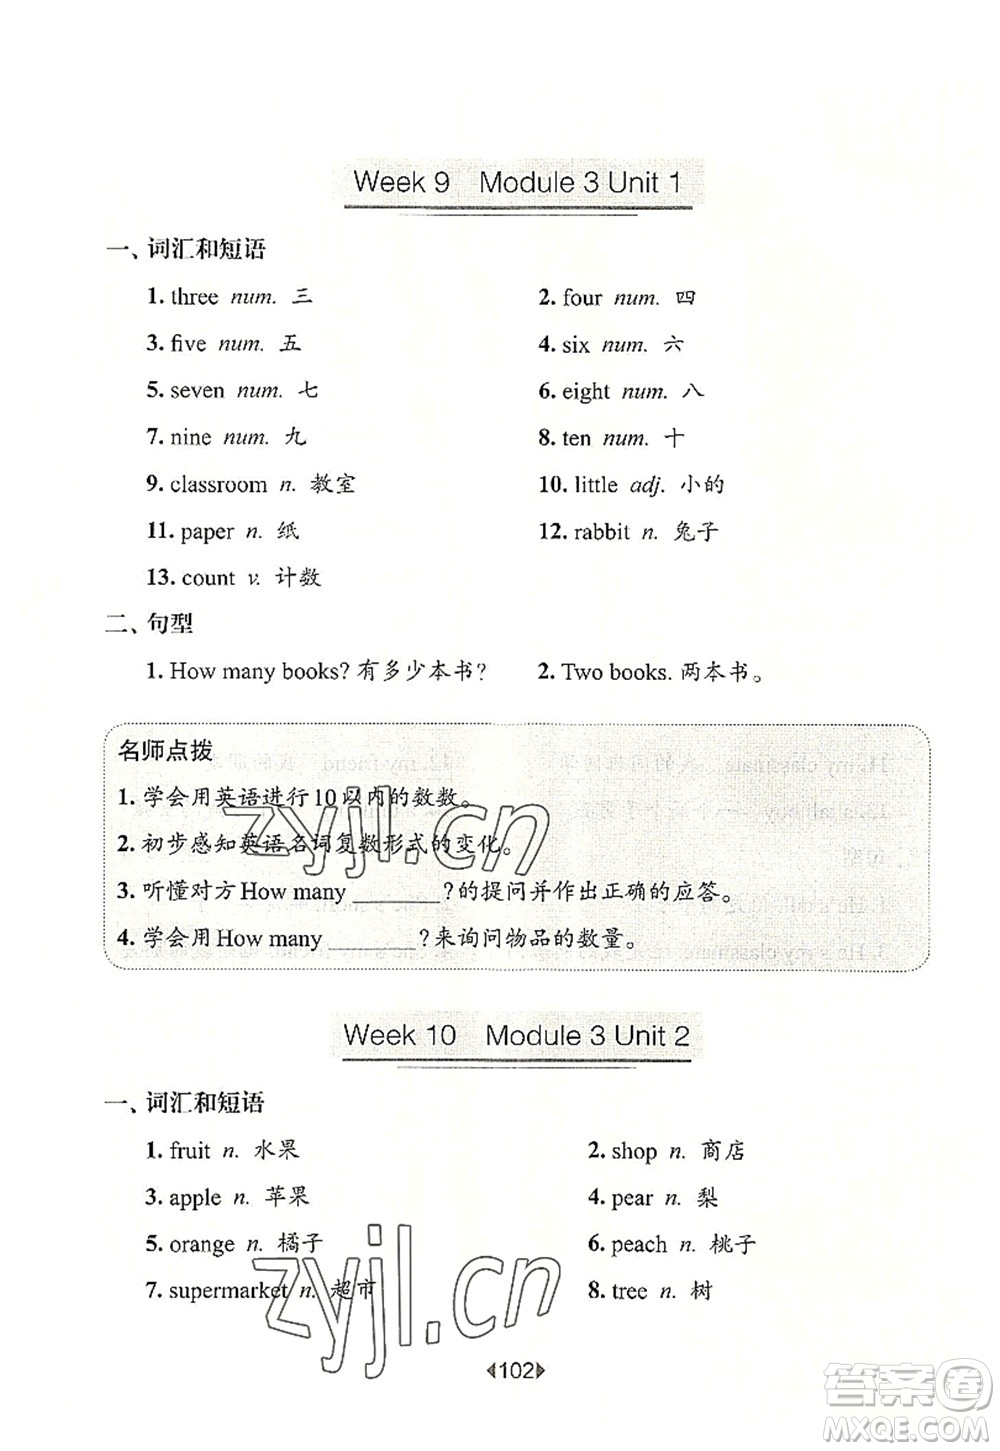 Week 9 Module 3 Unit 1
一、词汇和短语
1. three num. 三 2. four num. 四
3. five num. 五 4. six num. 六
5. seven num. 七 6. eight num. 八
7. nine num. 九 8. ten num. 十
9. classroom n. 教室 10. little adj. 小的
11. paper n. 纸 12. rabbit n. 兔子
13. count v. 计数
二、句型
1. How many books? 有多少本书? 2. Two books. 两本书。
名师点拨
1. 学会用英语进行10以内的数数。
2. 初步感知英语名词复数形式的变化。
3. 听懂对方How many ________?的提问并作出正确的应答。
4. 学会用How many ________?来询问物品的数量。
zyjl.cn
Week 10 Module 3 Unit 2
一、词汇和短语
1. fruit n. 水果 2. shop n. 商店
3. apple n. 苹果 4. pear n. 梨
5. orange n. 橘子 6. peach n. 桃子
7. supermarket n. 超市 8. tree n. 树
zyjl.cn
102
答案圈
MXQE.COM